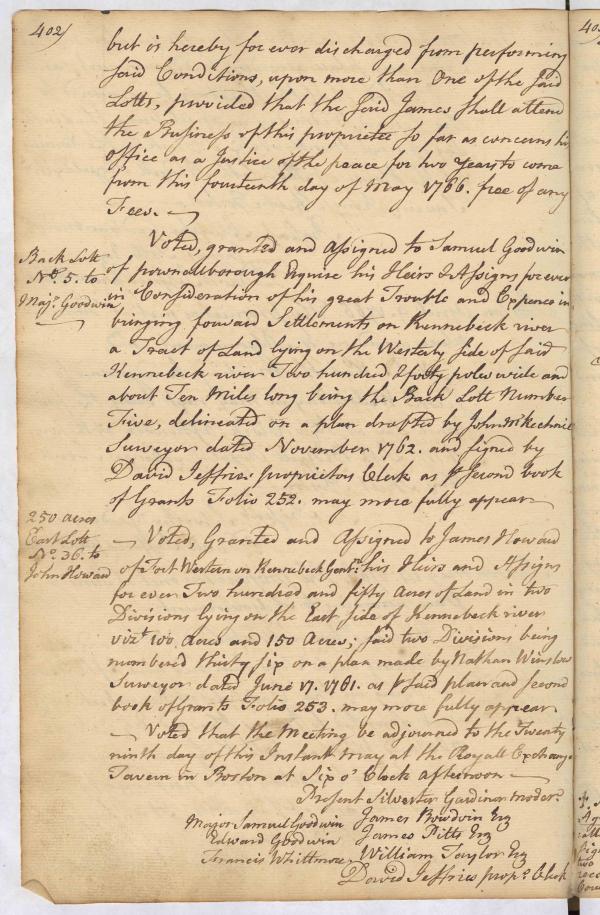 402)
but is hereby for ever discharged from performing
said Conditions, upon more than One of the said
Lotts, provided that the said James shall attend
the Business of this proprietee so far as concerns his
office as a Justice of the peace for two Years to come
from this fourteenth day of May 1766. free of any
Fees.
Back Lott
No. 5. to
Majr. Goodwin
Voted, granted and Assigned to Samuel Goodwin
of pownallborough Esquire his Heirs & Assigns for ever
in Consideration of his great Trouble and Expence in
bringing forward Settlements on Kennebeck river
a Tract of Land lying on the Westerly side of said
Kennebeck river Two hundred & forty poles wide and
about Ten Miles long being the Back Lott Number
Five, delineated on a plan drafted by John McKechnie
Surveyor dated November 1762. and signed by
David Jeffries proprietors Clerk as pr second book
of Grants Folio 252. may more fully appear
250 acres
East Lott
No. 36. to
John Howard
Voted, Granted and Assigned to James Howard
of Fort Western on Kennebeck Gentn. his Heirs and Assigns
for ever Two hundred and fifty Acres of Land in two
Divisions lying on the East side of Kennebeck river
vizt. 100 Acres and 150 Acres; said two Divisions being
numbered thirty six on a plan made by Nathan Winslow
Surveyor dated June 17. 1761. as pr said plan and second
book of Grants Folio 253. may more fully appear
Voted that the Meeting be adjourned to the Twenty
ninth day of this Instant May at the Royall Exchange
Tavern in Boston at Six o'Clock afternoon
Present Silvester Gardiner moder.
Major Samuel Goodwin James Bowdoin Esq
Edward Goodwin James Pitts Esq
Francis Whittmore William Taylor Esq
David Jeffries propr. Clerk